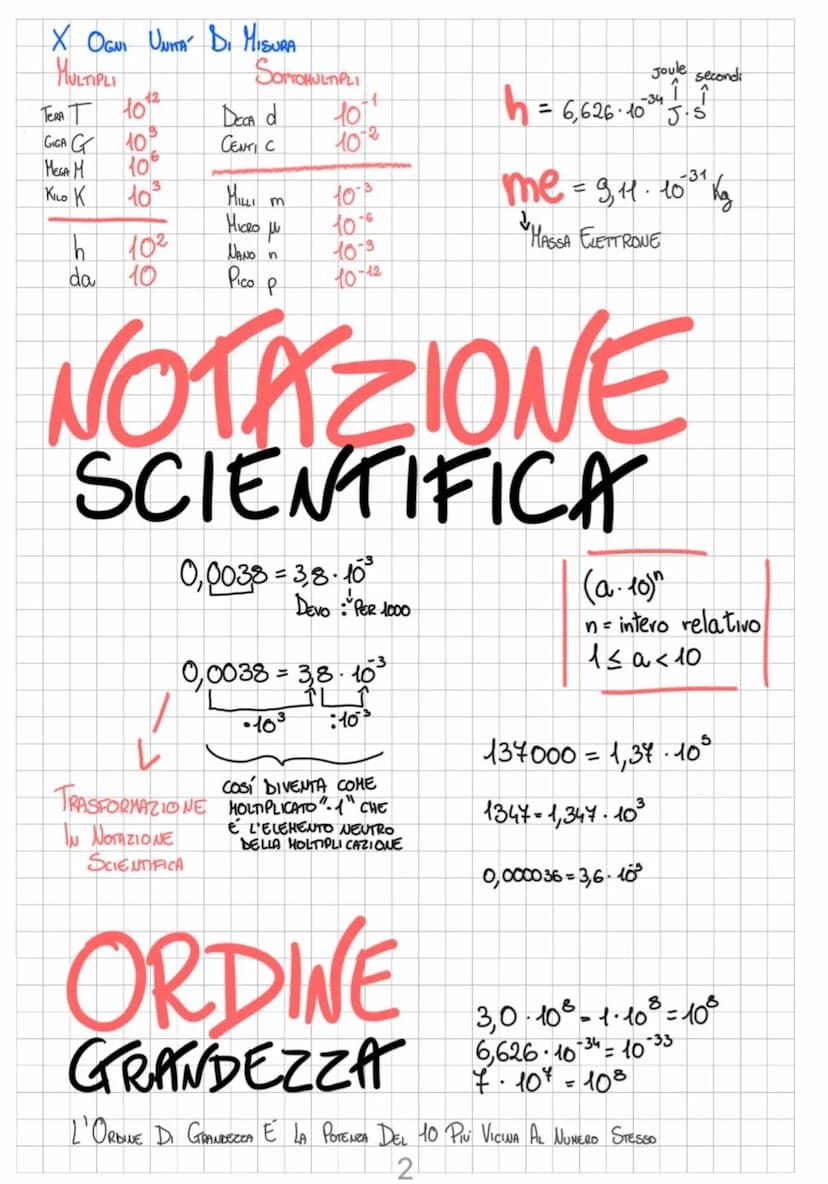 X OGNI UNITA' DI MISURA
MULTIPLI
TERA T 10¹²
GIGA G 10⁹
MEGA M 10⁶
KILO K 10³
h 10²
da 10
SOTTOMULTIPLI
DECA d 10⁻¹
CENTI c 10⁻²
MILLI m 10⁻³
MICRO μ 10⁻⁶
NANO n 10⁻⁹
PICO p 10⁻¹²
Joule secondi
h = 6,626 · 10⁻³⁴ J · s
me = 9,11 · 10⁻³¹ Kg
MASSA ELETTRONE
NOTAZIONE
SCIENTIFICA
0,0038 = 3,8 · 10⁻³
DEVO : PER 1000
0,0038 = 3,8 · 10⁻³
·10³ :10⁻³
TRASFORMAZIONE
IN NOTAZIONE
SCIENTIFICA
COSÍ DIVENTA COME
MOLTIPLICATO "·1" CHE
É L'ELEMENTO NEUTRO
DELLA MOLTIPLICAZIONE
(a · 10)ⁿ
n = intero relativo
1 ≤ a < 10
137000 = 1,37 · 10⁵
1347 = 1,347 · 10³
0,000036 = 3,6 · 10⁻⁵
ORDINE
GRANDEZZA
3,0 · 10⁸ = 1 · 10⁸ = 10⁸
6,626 · 10⁻³⁴ = 10⁻³³
7 · 10⁷ = 10⁸
L'ORDINE DI GRANDEZZA É LA POTENZA DEL 10 PIÚ VICINA AL NUMERO STESSO
2